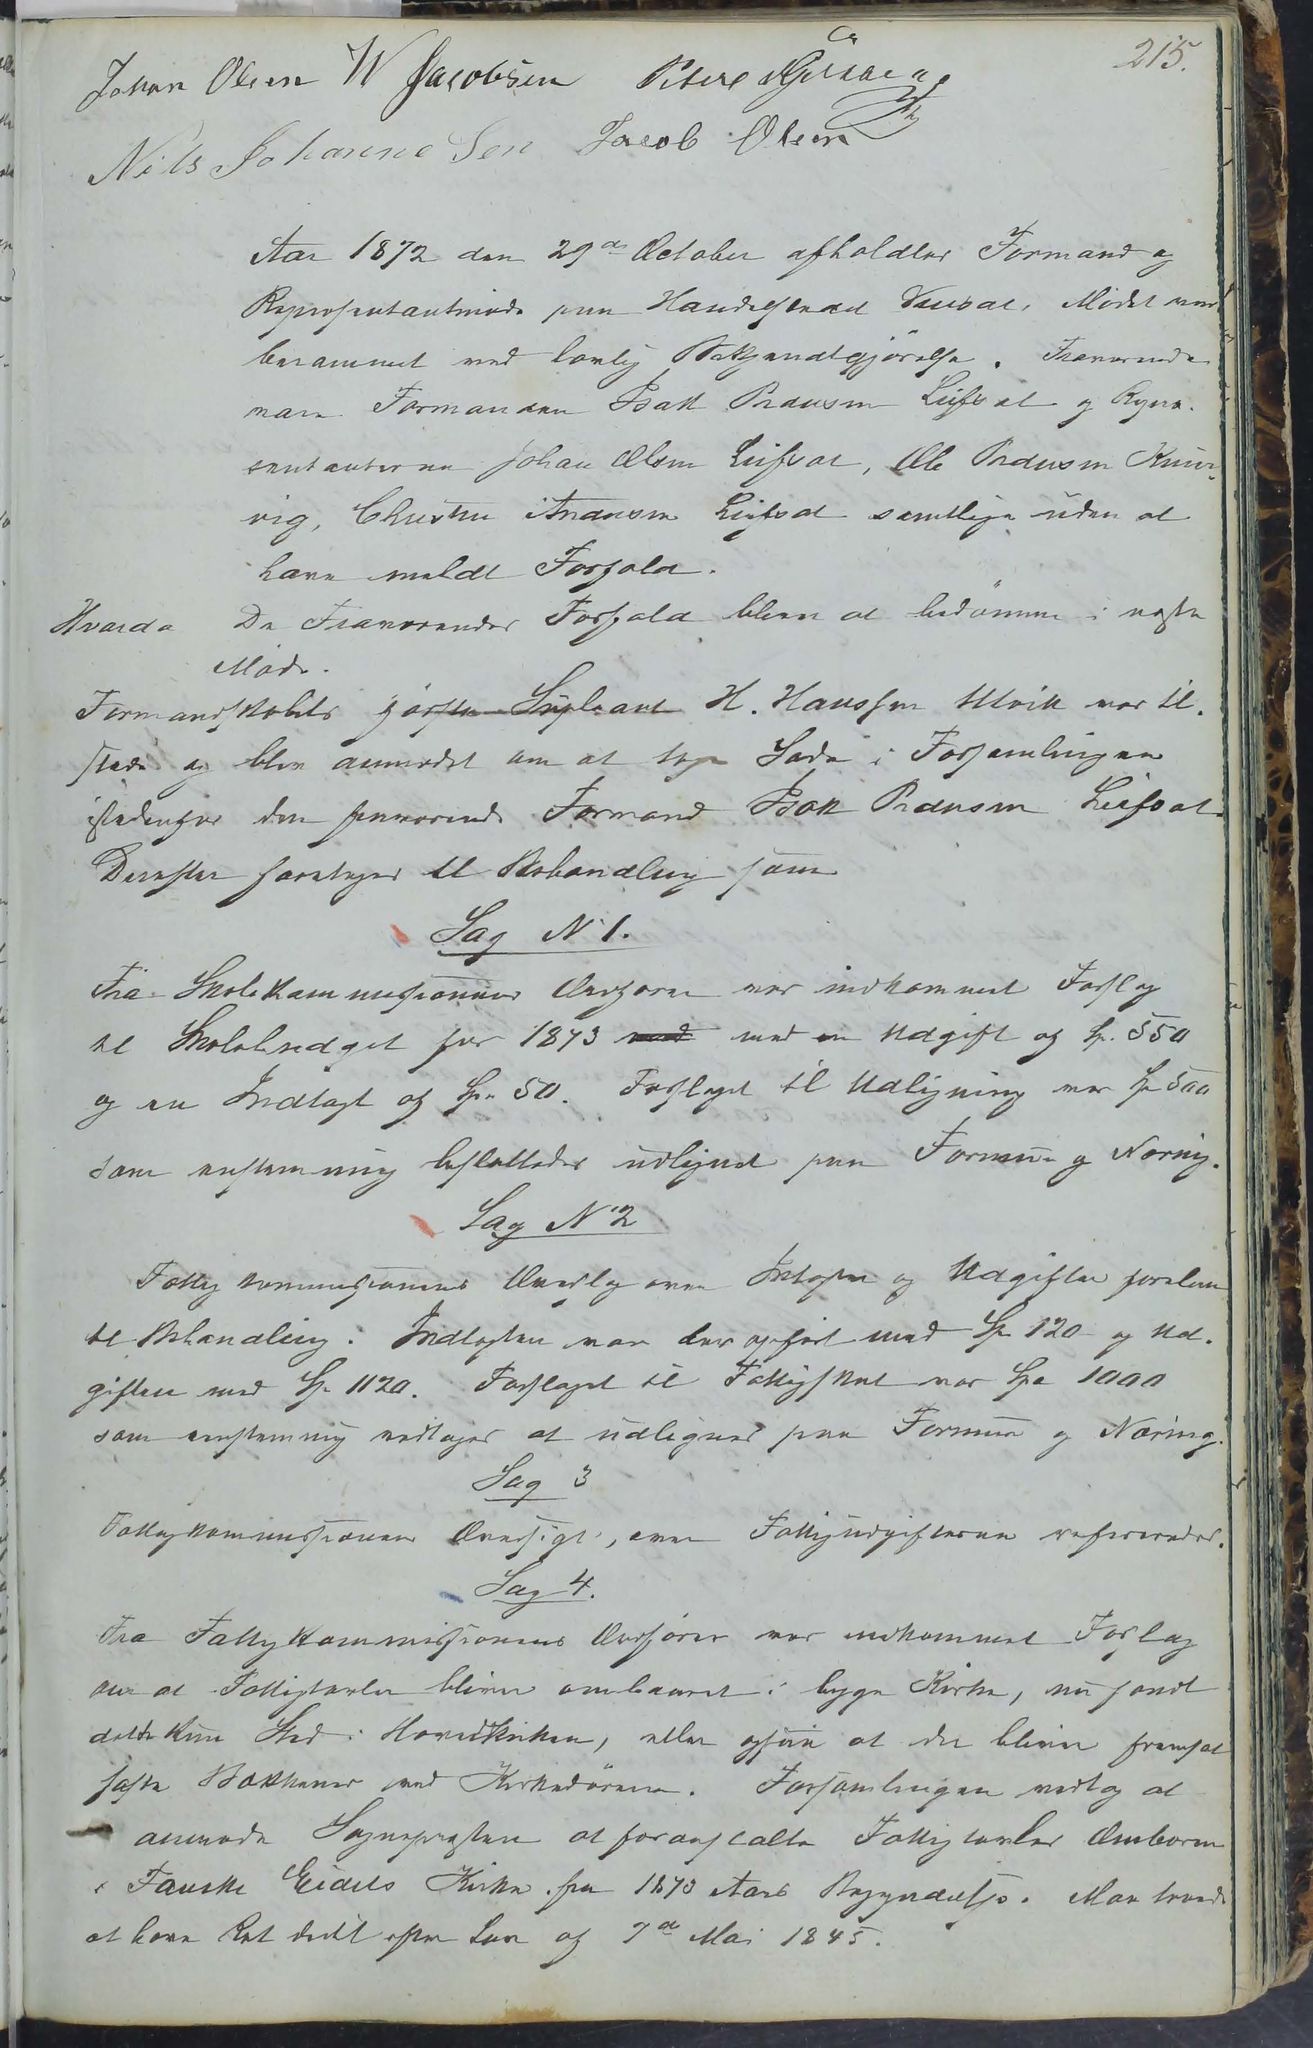 215.
Johan Olsen W Jacobsen Peter
Nils Johanne Sen Jacob Olsen
Aar 1872 den 29de October afholdtes Formand og
Repræsentantmøde paa Handelsstedet Venset. Mødet var
berammet ved lovlig Bekjendtgjörelse. Fraværende
vare Formanden Isak Pedersen Leifset og Repræ-
sentanterne Johan Olsen Leifset, Ole Pedersen Kmør-
vig, Christen Andersen Leifset samtlige uden at
have meldt Forfald.
Hvorda De Fraværendes Forfald bliver at bedömme i næste
Møde.
Formandskabets förste Supleant H. Hanssen Alvik var til-
stede og blev anmodet om at tage Sæde i Forsamlingen
istedenfor den fraværende Formand Isak Pedersen Leifset.
Derefter foretages til Behandling som
Sag N 1.
Fra Skolekommissionens Ordförer var indkommet Forslag
til Skolebudget for 1873 med en Udgift af Sp. 550
og en Indtægt af Sp. 50. Forslaget til Udligning var Sp 500
som enstemmig besluttedes udlignet paa Formue og Næring.
Sag N 2
Fattigkommissionens Overslag over Indtægter og Udgifter forelaa
til Behandling. Indtægten var der opfört med Sp 120 og Ud-
giften med Sp. 1120. Forslaget til Fattigskat var Spe 1000
som enstemmig vedtages at udlignes paa Formue og Næring.
Sag 3
Fattigkommissionens Oversigt, over Fattigudgifterne refereredes.
Sag 4.
Fra Fattigkommissionens Ordförer var indkommet Forslag
om at Fattigtavlen bliver ombaaret i begge Kirker, nu fandt
dette kun Sted i Hovedkirken, eller ogsaa at der bliver fremsat
faste Bækkener ved Kirkedörene. Forsamlingen vedtog at
anmode Sognepræsten at foranstalte Fattigtavlen Ombaaren
i Fauske Eidets Kirke fra 1873 Aars Begyndelse. Man troede
at have Ret dertil efter Lov af 7de Mai 1845.